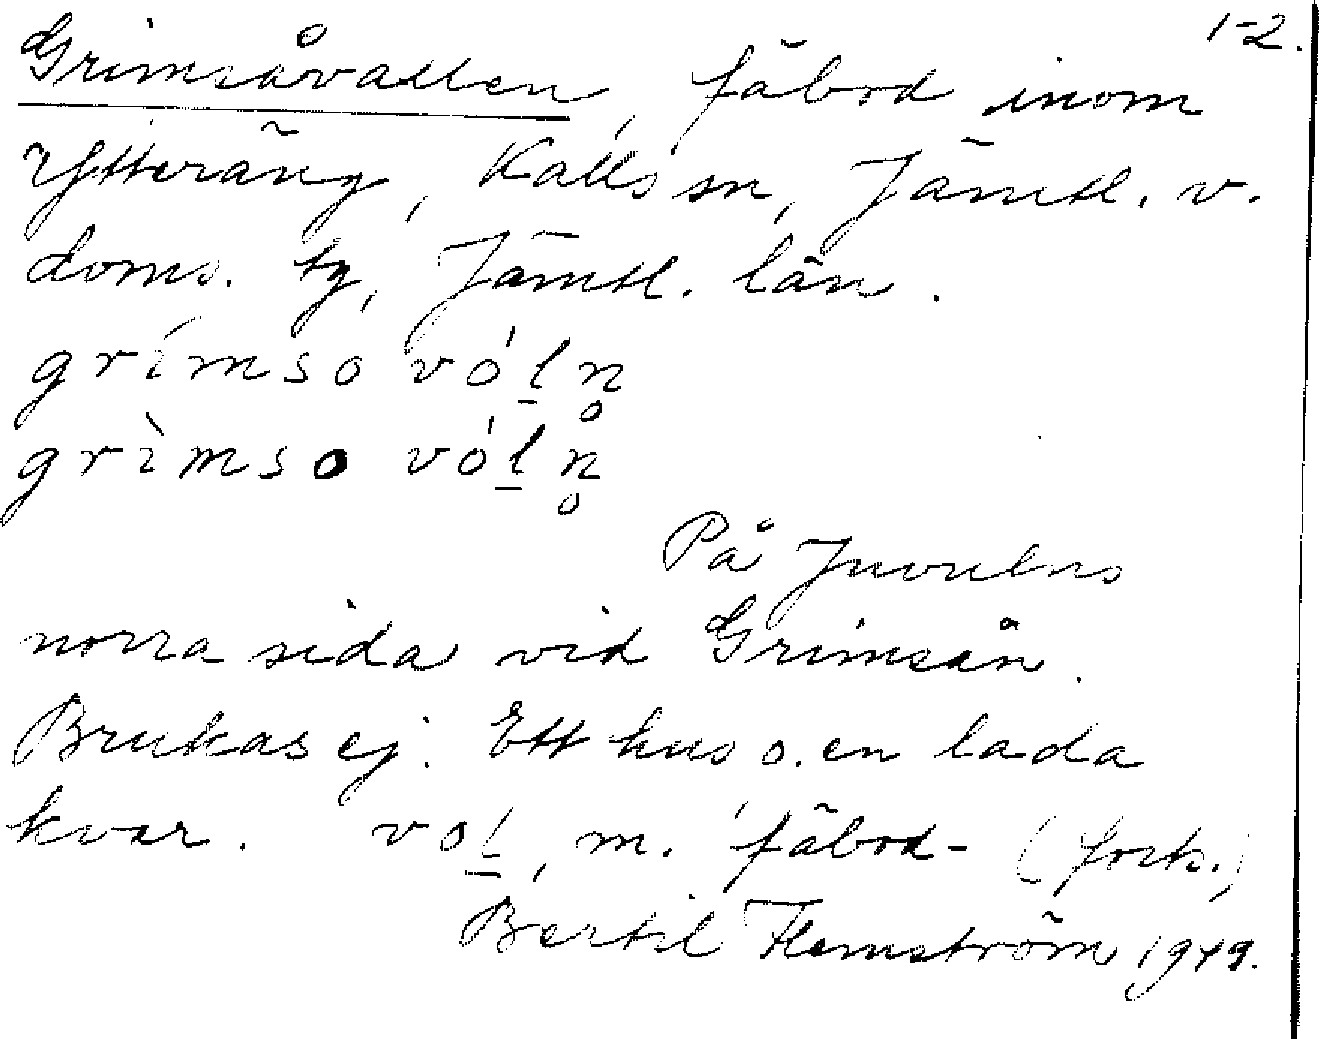 1-2.
Grimsåvallen, fäbod inom
Ytteräng, Kalls sn, Jämtl. v.
doms. tg, Jämtl. län.
grímso vól̲n̥
grìmso vól̲n̥
På Juvulns
norra sida vid Grimsån.
Brukas ej. Ett hus o. en lada
kvar. vol̲, m. 'fäbod- (forts.)
Bertil Flemström 1949.